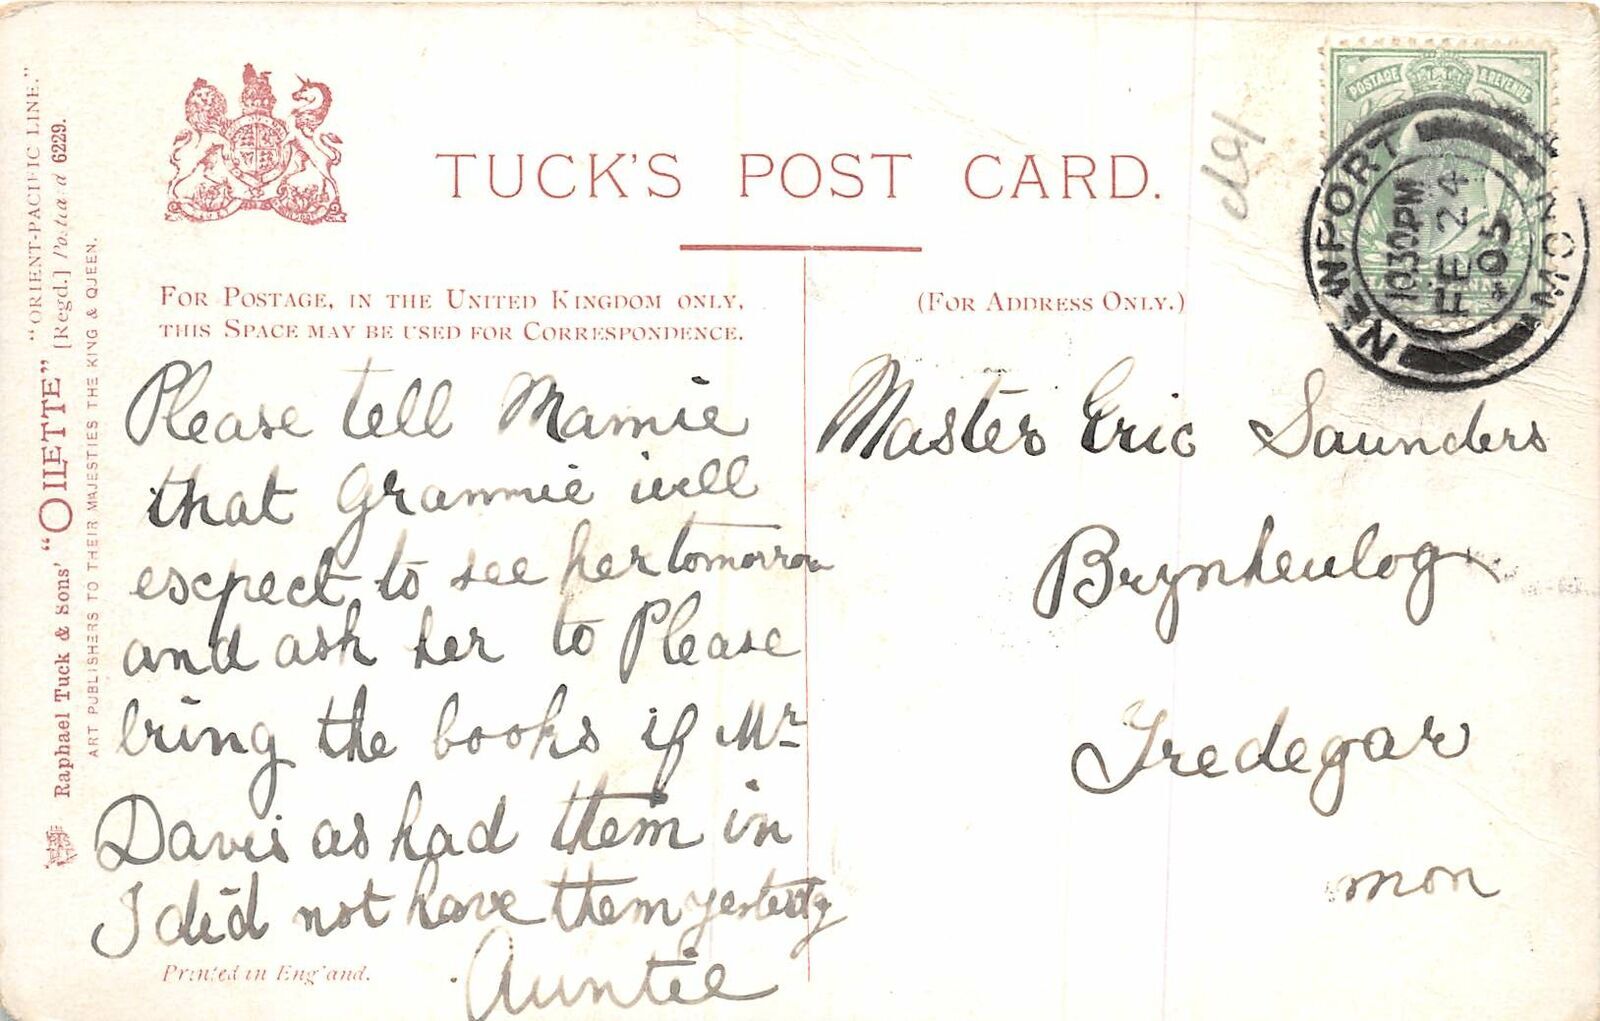 TUCK'S POST CARD.
FOR POSTAGE, IN THE UNITED KINGDOM ONLY,
THIS SPACE MAY BE USED FOR CORRESPONDENCE.
(FOR ADDRESS ONLY.)
Please tell Mamie
that Grannie will
expect to see her tomorrow
and ask her to Please
bring the books if Mr
Davis as had them in
I did not have them yesterday
Auntie
Master Eric Saunders
Brynheulog
Tredegar
mon
Printed in England.
Raphael Tuck & Sons' "OILETTE" [Regd.] Postcard 6229.
"ORIENT-PACIFIC LINE."
ART PUBLISHERS TO THEIR MAJESTIES THE KING & QUEEN.
POSTAGE & REVENUE
NEWPORT MON
1030PM
FE 24
05